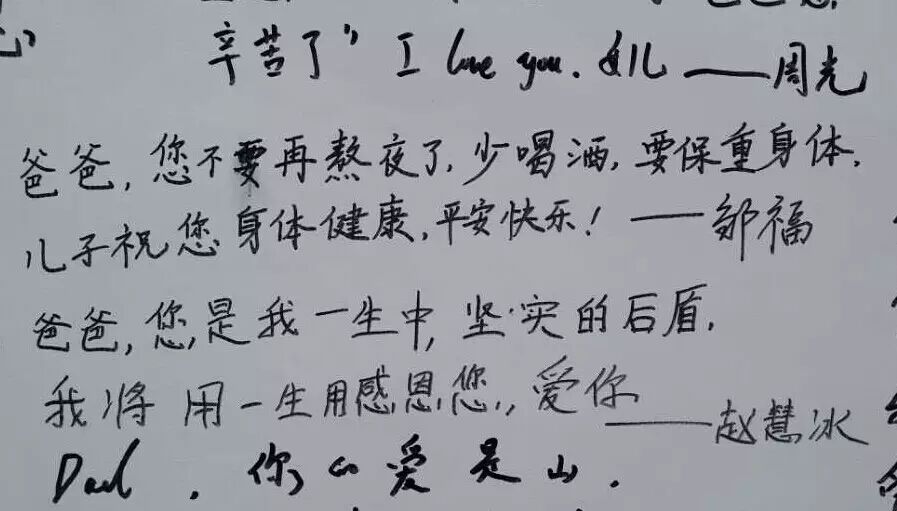 辛苦了" I love you. 女儿 ——周光
爸爸,您不要再熬夜了,少喝酒,要保重身体.
儿子祝您身体健康,平安快乐! ——邹福
爸爸,您是我一生中,坚实的后盾.
我将用一生用感恩您,,爱你——赵慧冰
Dad . 你的爱是山.